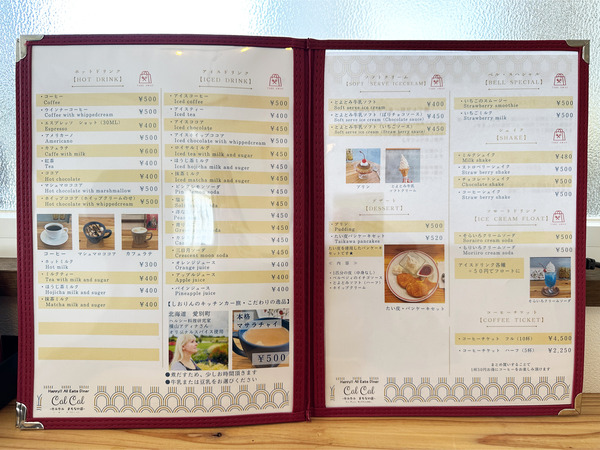 ホットドリンク
【HOT DRINK】
・コーヒー
Coffee ¥500
・ウインナーコーヒー
Coffee with whippedcream ¥500
Espresso ¥400
・アメリカーノ
Americano ¥500
・カフェラテ
Caffe with milk ¥600
・紅茶
Tea ¥400
・ココア
Hot chocolate ¥400
・マシュマロココア
Hot chocolate with marshmallow ¥500
・ホイップココア（ホイップクリームのせ）
Hot chocolate with whippedcream ¥500
コーヒー マシュマロココア カフェラテ
・ホットミルク
Hot milk ¥300
・ミルクティー
Tea with milk and sugar ¥400
・ほうじ茶ミルク
Hojicha milk and sugar ¥400
・抹茶ミルク
Matcha milk and sugar ¥400
Hanny's All Eatza Diner
Cal Cal
アイスドリンク
【ICED DRINK】
・アイスコーヒー
Iced coffee ¥500
・アイスティー
Iced tea ¥400
・アイスココア
Iced chocolate ¥450
・アイスホイップココア
Iced chocolate with whippedcream ¥500
・アイスミルクティー
Iced tea with milk and sugar ¥450
・ほうじ茶ミルク
Iced hojicha milk and sugar ¥450
・抹茶ミルク
Iced matcha milk and sugar ¥450
¥450
¥450
¥450
¥450
・三日月ソーダ
Crescent moon soda ¥450
・オレンジジュース
Orange juice ¥400
・アップルジュース
Apple juice ¥400
・パインジュース
Pineapple juice ¥400
【しおりんのキッチンカー旅・こだわりの逸品】
北海道 愛別町
ヘルシー料理研究家
横山アディナさん
オリジナルスパイス使用
本格
マサラチャイ
¥500
●煮だすため、少しお時間頂きます
●牛乳または豆乳をお選びください
Hanny's All Eatza Diner
Cal Cal
ソフトクリーム
【SOFT SERVE ICECREAM】
・とよとみ牛乳ソフト
Soft serve ice cream ¥400
・とよとみ牛乳ソフト（ぱりチョコソース）
Soft serve ice cream (Chocolate sauce) ¥450
・とよとみ牛乳ソフト（いちごソース）
¥450
プリン
とよとみ牛乳
ソフトクリーム
デザート
【DESSERT】
・プリン
Pudding ¥500
・たい夜パンケーキ
Taikawa pancakes ¥520
たい夜・パンケーキセット
【BELL SPECIAL】
・いちごのスムージー
Strawberry smoothie ¥500
・いちごミルク
Strawberry milk ¥500
シェイク
【SHAKE】
・ミルクシェイク
Milk shake ¥480
・ストロベリーシェイク
Straw berry shake ¥500
・チョコレートシェイク
Chocolate shake ¥500
Straw berry shake ¥500
【ICE CREAM FLOAT】
・そらいろクリームソーダ
Sorairo cream soda ¥500
・もりいろクリームソーダ
Moriiro cream soda ¥500
アイスドリンク各種
＋50円でフロートに
そらいろクリームソーダ
コーヒーチケット
【COFFEE TICKET】
・コーヒーチケット フル（10杯） ¥4,500
・コーヒーチケット ハーフ（5杯） ¥2,250
まとめ買いすることで
1杯50円お得にコーヒーをお楽しみ頂けます